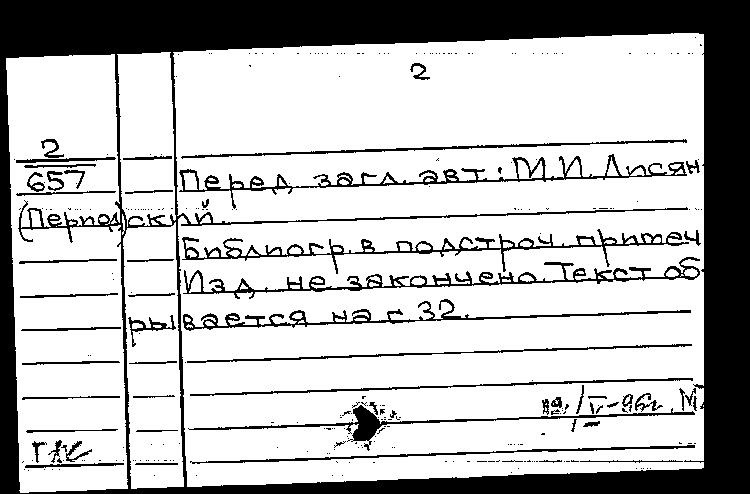 2
2
657 Перед загл. авт.: М.И. Лисян-
(Период) ский.
Библиогр. в подстроч. примеч
Изд. не закончено. Текст об-
рывается на с 32.
-96г. М